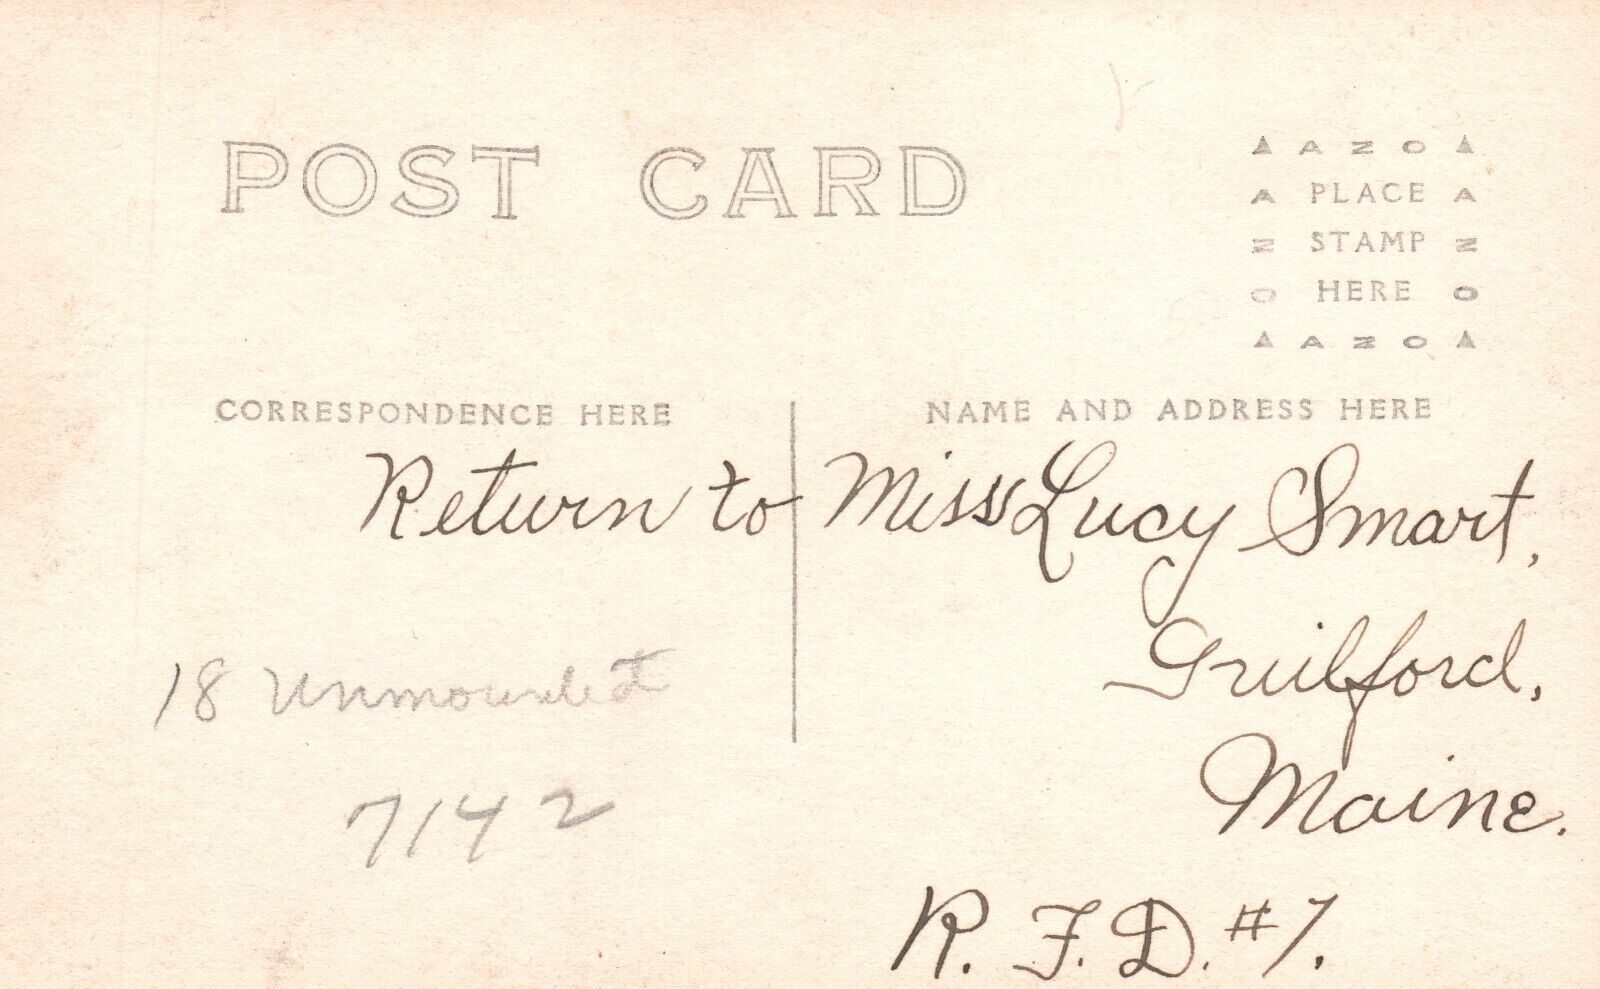 POST CARD
▲ A Z O ▲
A PLACE A
Z STAMP Z
O HERE O
▲ A Z O ▲
CORRESPONDENCE HERE
NAME AND ADDRESS HERE
Return to Miss Lucy Smart,
Guilford,
Maine.
R. F. D. #1.
18 Unmounted
7142